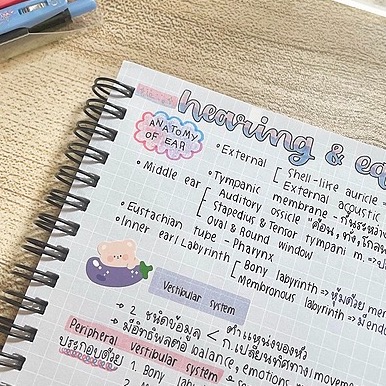 hearing & ea
ANATOMY OF EAR
• External [ Shell-like auricle =
External acoustic
• Middle ear [ • Tympanic membrane - กั้นระหว่าง
Auditory ossicle "ค้อน, ทั่ง, โกลน
Stapedius & Tensor tympani m. =>
Oval & Round window
• Eustachian tube - Pharynx
• Inner ear / Labyrinth [ Bony labyrinth => หุ้มด้วย mem
Membronous labyrinth => มี endo
Vestibular system
→ 2 ชนิดข้อมูล < ตำแหน่งของหัว
ก. เปลี่ยนทิศทาง movement
→ มีอิทธิพลต่อ balance, emotion
Peripheral Vestibular system
ประกอบด้วย 1. Bony labyr
2. Memb